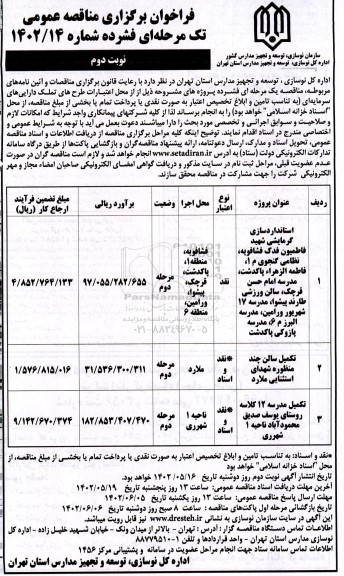 فراخوان برگزاری مناقصه عمومی
تک مرحله‌ای فشرده شماره ۱۴۰۲/۱۴
نوبت دوم
سازمان نوسازی، توسعه و تجهیز مدارس کشور
اداره کل نوسازی، توسعه و تجهیز مدارس استان تهران
اداره کل نوسازی ، توسعه و تجهیز مدارس استان تهران در نظر دارد با رعایت قانون برگزاری مناقصات و آئین نامه‌های
مربوطه، مناقصه یک مرحله ای فشرده پروژه های مشروحه ذیل را از محل اعتبارات طرح های تملک دارایی‌های
سرمایه‌ای (به تناسب تامین و ابلاغ تخصیص اعتبار به صورت نقدی یا پرداخت تمام یا بخشی از مبلغ مناقصه، از محل
"اسناد خزانه اسلامی" خواهد بود) را به انجام برساند. لذا از کلیه شرکتهای پیمانکاری واجد شرایط که امکانات لازم
و صلاحیت و سوابق اجرائی و تخصصی مورد بحث را دارا میباشند دعوت بعمل می آید با توجه به شرایط عمومی و
اختصاصی مندرج در اسناد اقدام نمایند. توضیح اینکه کلیه مراحل برگزاری مناقصه از دریافت اطلاعات و اسناد مناقصه
عمومی، تحویل اسناد و مدارک، ارسال دعوتنامه، ارائه پیشنهاد مناقصه‌گران و بازگشایی پاکت‌ها از طریق درگاه سامانه
تدارکات الکترونیکی دولت (ستاد) به آدرس www.setadiran.ir انجام خواهد شد و لازم است مناقصه گران در صورت
عدم عضویت قبلی، مراحل ثبت نام در سایت مذکور و دریافت گواهی امضای الکترونیکی صاحبان امضاء مجاز و مهر
الکترونیکی شرکت را جهت مشارکت در مناقصه محقق سازند.
ردیف عنوان پروژه نوع اعتبار محل اجرا وضعیت برآورد ریالی مبلغ تضمین فرآیند ارجاع کار (ریال)
۱ استانداردسازی گرمایشی شهید فاطمیون فدک قیامدشت، نظامی گنجوی م ۱، فاطمه الزهراء پاکدشت، مدرسه امام حسن قرچک، سالن ورزشی طارند پیشوا، مدرسه ۱۷ شهریور ورامین، مدرسه البرز م ۶، مدرسه پازوکی پاکدشت نقد فشافویه، منطقه۱، پاکدشت، قرچک، پیشوا، ورامین، منطقه ۶ مرحله دوم ۹۷/۰۵۵/۲۸۲/۶۵۵ ۴/۸۵۲/۷۶۴/۱۳۳
۲ تکمیل سالن چند منظوره شهدای استثنایی ملارد *نقد و اسناد ملارد مرحله دوم ۳۱/۵۳۶/۳۰۰/۳۱۱ ۱/۵۷۶/۸۱۵/۰۱۶
۳ تکمیل مدرسه ۱۲ کلاسه روستای یوسف صدیق محمودآباد ناحیه ۱ شهرری *نقد و اسناد ناحیه ۱ شهرری مرحله دوم ۱۸۲/۸۵۳/۴۰۷/۴۷۰ ۹/۱۴۲/۶۷۰/۳۷۴
*نقد و اسناد: به تناسب تامین و ابلاغ تخصیص اعتبار به صورت نقدی یا پرداخت تمام یا بخشی از مبلغ مناقصه، از
محل "اسناد خزانه اسلامی" خواهد بود
تاریخ انتشار آگهی نوبت دوم روز دوشنبه تاریخ ۱۴۰۲/۰۵/۱۶ خواهد بود.
آخرین مهلت دریافت اسناد مناقصه عمومی: ساعت ۱۳ روز پنجشنبه تاریخ ۱۴۰۲/۰۵/۱۹
مهلت ارسال پاسخ مناقصه عمومی: ساعت ۱۳ روز یکشنبه تاریخ ۱۴۰۲/۰۶/۰۵
تاریخ بازگشائی مرحله اول پاکت‌های مناقصه : ساعت ۸ صبح روز دوشنبه تاریخ ۱۴۰۲/۰۶/۰۶
این آگهی در سایت سازمان نوسازی به نشانی www.dresteh.ir نیز قابل رویت میباشد.
اطلاعات تماس دستگاه مناقصه گزار : آدرس : تهران - بالاتر از میدان ونک - خیابان شهید خلیل زاده - اداره کل
نوسازی مدارس استان تهران - واحد قراردادها و تلفن ۱-۸۸۷۷۹۵۱۰
اطلاعات تماس سامانه ستاد جهت انجام مراحل عضویت در سامانه و پشتیبانی مرکز ۱۴۵۶
اداره کل نوسازی، توسعه و تجهیز مدارس استان تهران